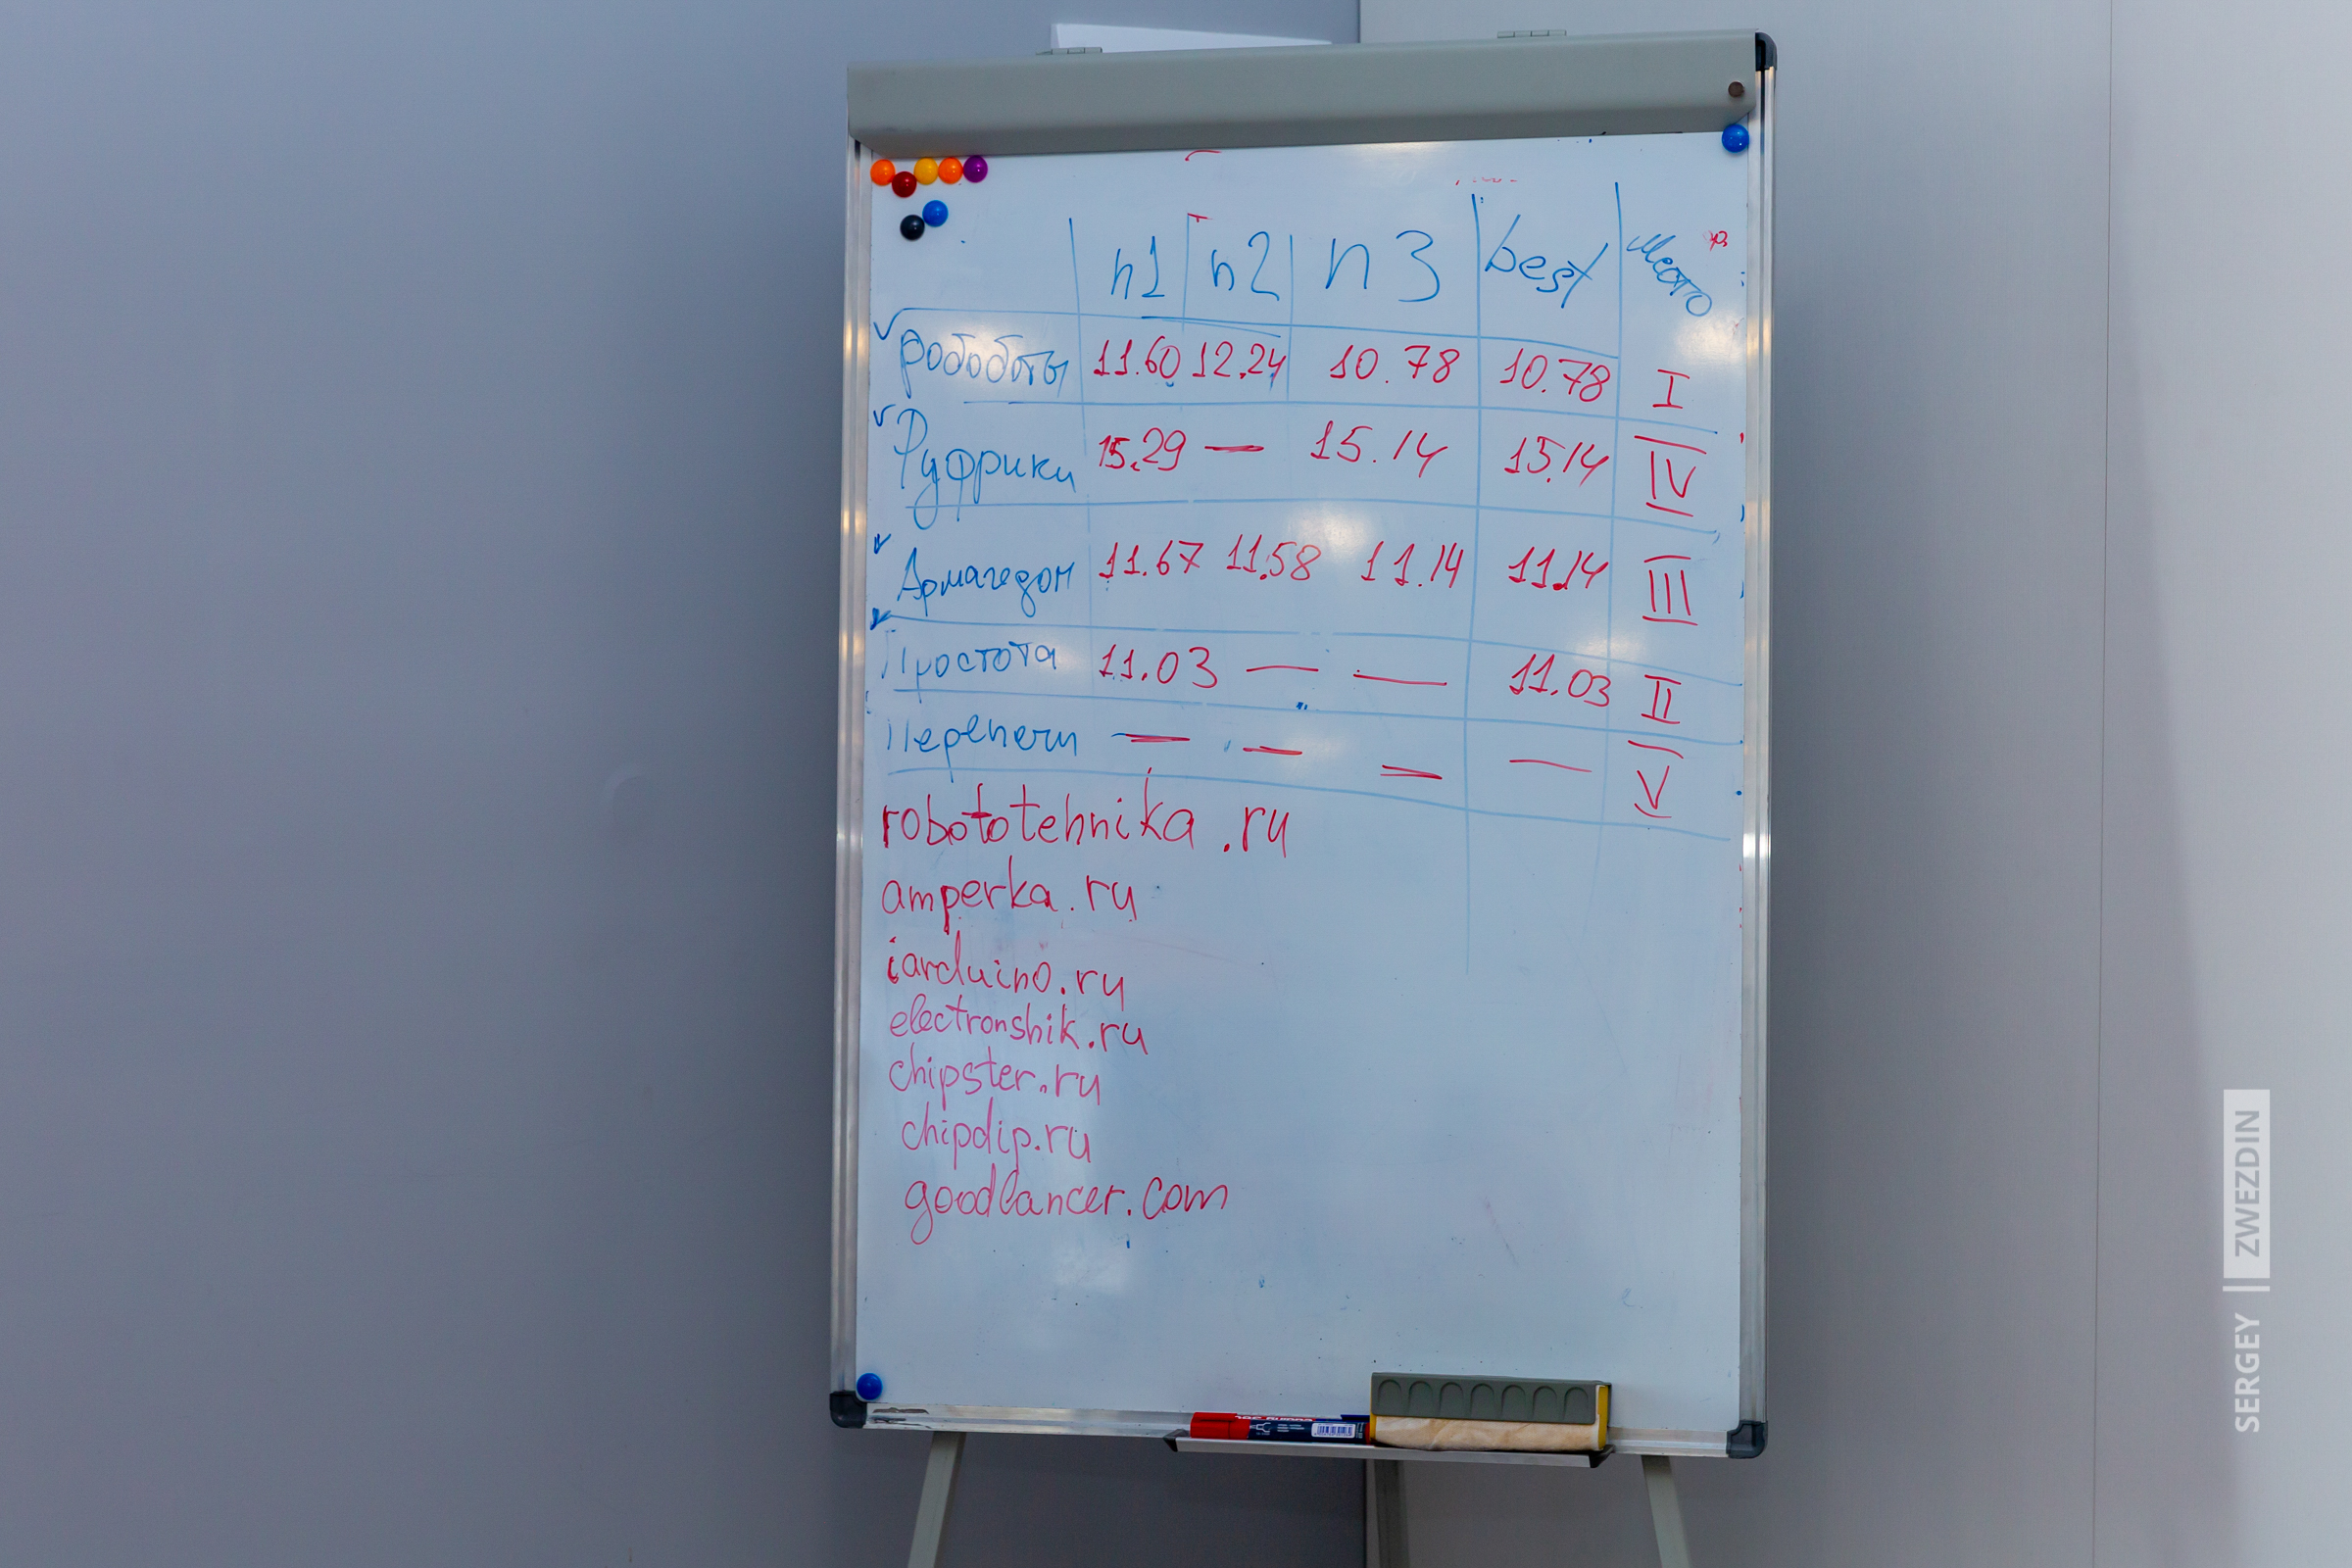 n1 n2 n3 best Место
рободоты 11.60 12.24 10.78 10.78 I
Руфрики 15.29 — 15.14 15.14 IV
Армагедон 11.67 11.58 11.14 11.14 III
Простота 11.03 — — 11.03 II
Перепечи — — — — V
robototehnika.ru
amperka.ru
iarduino.ru
electronshik.ru
chipster.ru
chipdip.ru
goodlancer.com
SERGEY ZWEZDIN